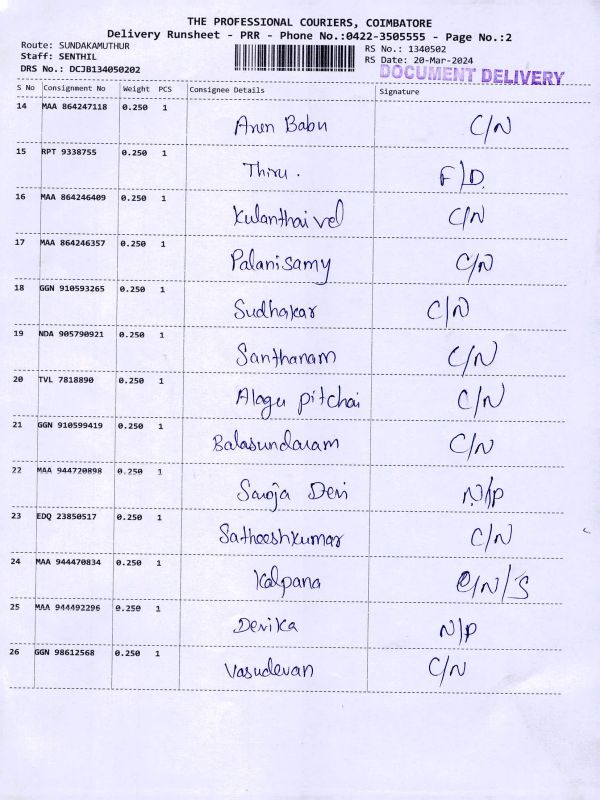 THE PROFESSIONAL COURIERS, COIMBATORE
Delivery Runsheet - PRR - Phone No.:0422-3505555 - Page No.:2
Route: SUNDAKAMUTHUR
RS No.: 1340502
Staff: SENTHIL
RS Date: 20-Mar-2024
DRS No.: DCJB134050202
DOCUMENT DELIVERY
S No Consignment No Weight PCS Consignee Details Signature
14 MAA 864247118 0.250 1 Arun Babu C/N
15 RPT 9338755 0.250 1 Thiru. F/D.
16 MAA 864246409 0.250 1 Kulanthaivel C/N
17 MAA 864246357 0.250 1 Palanisamy C/N
18 GGN 910593265 0.250 1 Sudhakar C/N
19 NDA 905790921 0.250 1 Santhanam C/N
20 TVL 7818890 0.250 1 Alagu pitchai C/N
21 GGN 910599419 0.250 1 Balasundaram C/N
22 MAA 944720898 0.250 1 Saroja Devi N/P
23 EDQ 23850517 0.250 1 Satheeshkumar C/N
24 MAA 944470834 0.250 1 Kalpana C/N/S
25 MAA 944492296 0.250 1 Devika N/P
26 GGN 98612568 0.250 1 Vasudevan C/N